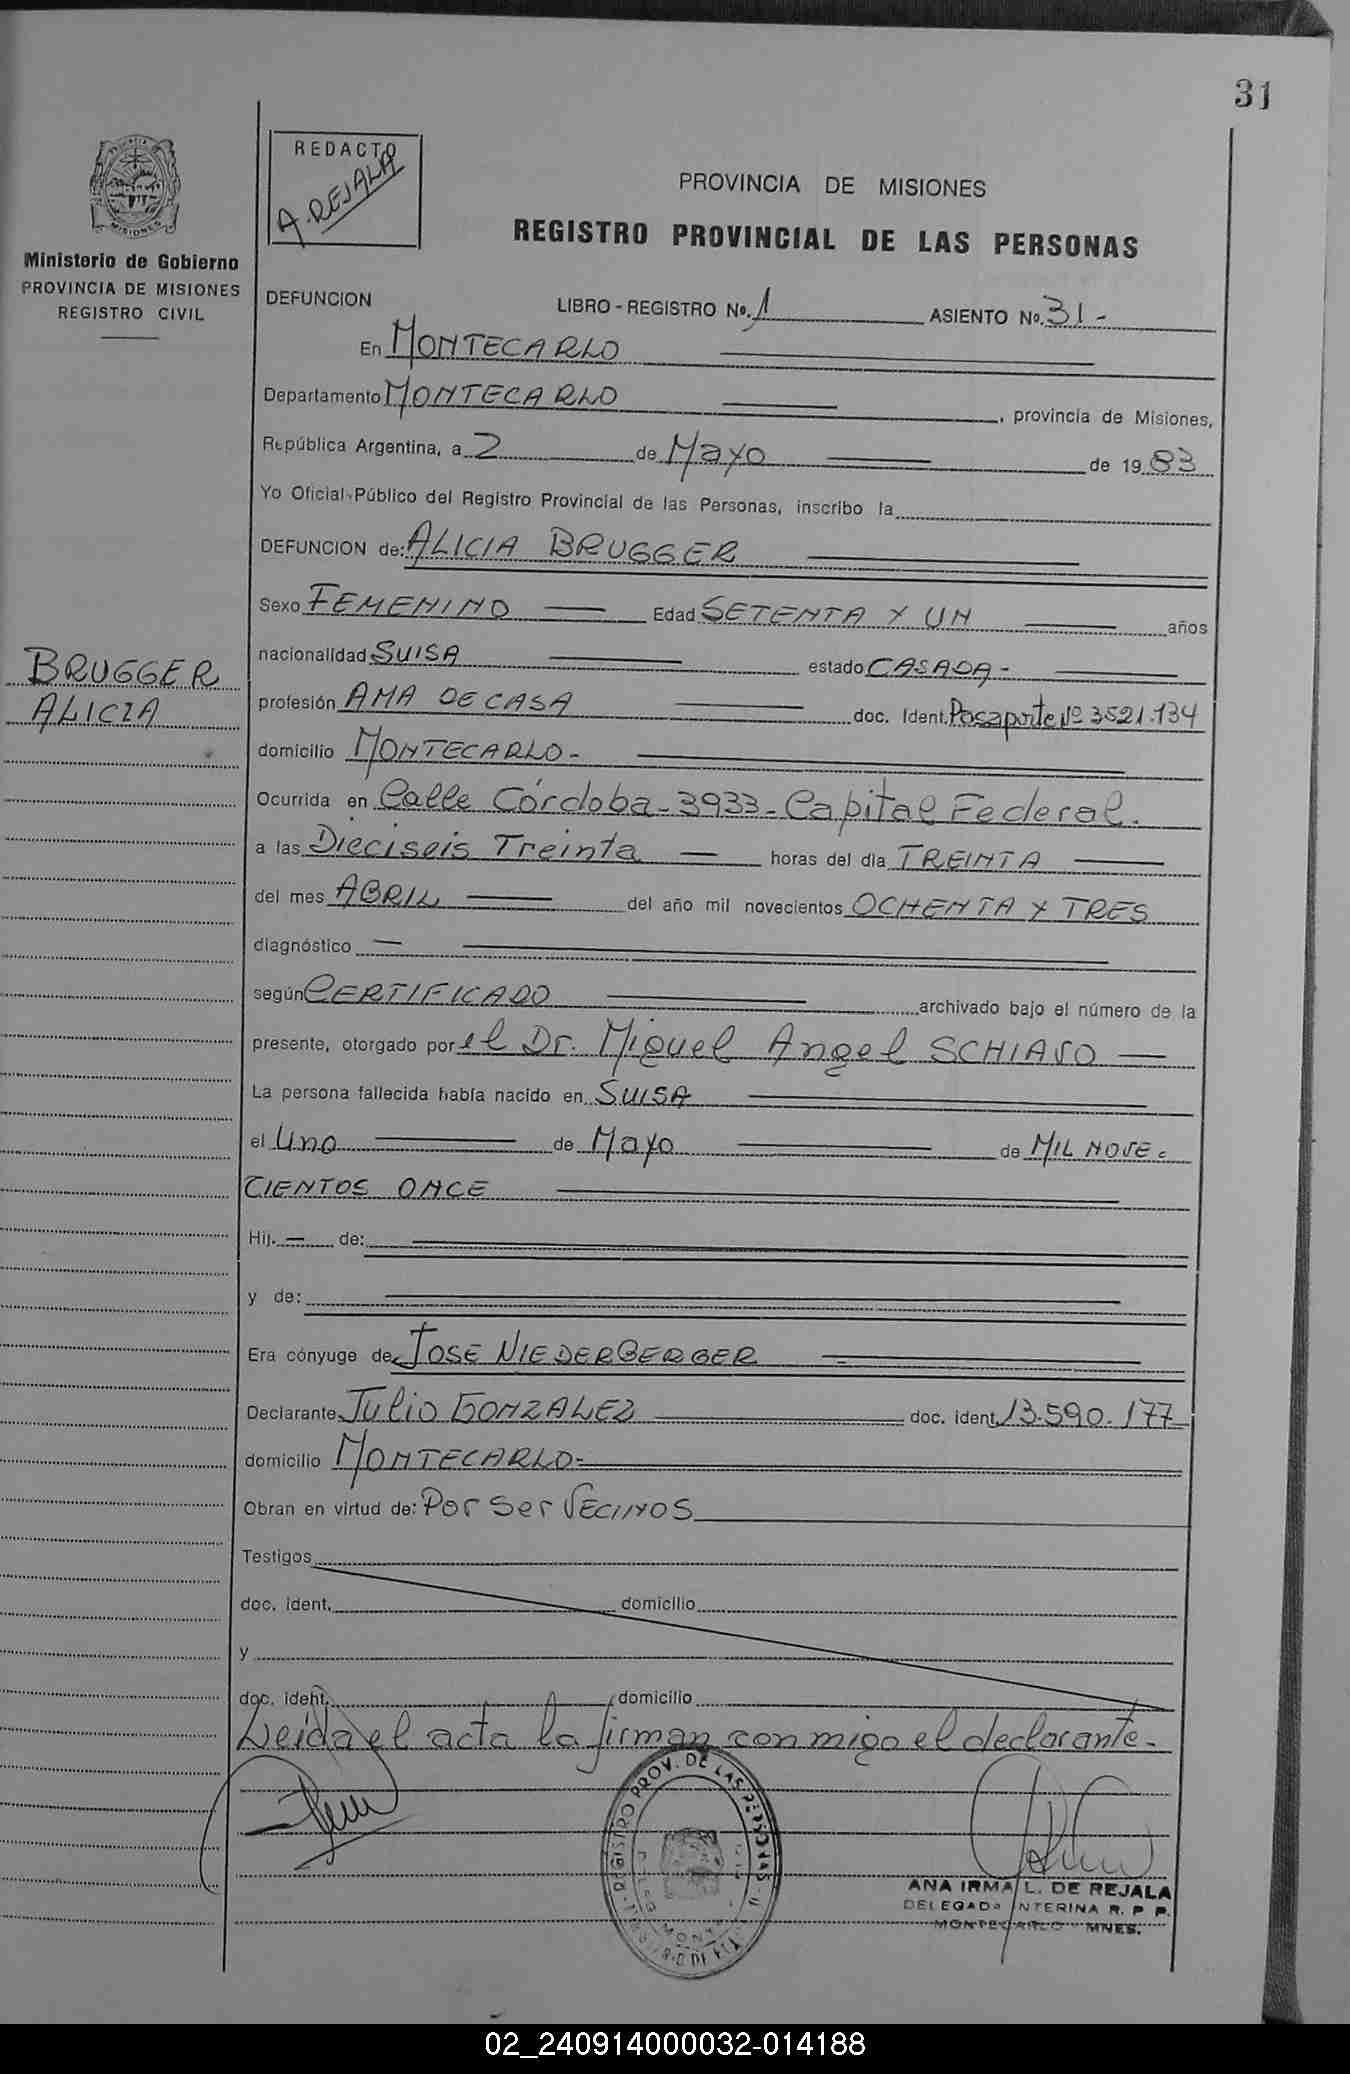 31
REDACTO
A. REJALA
PROVINCIA DE MISIONES
REGISTRO PROVINCIAL DE LAS PERSONAS
MISIONES
Ministerio de Gobierno
PROVINCIA DE MISIONES
REGISTRO CIVIL
DEFUNCION LIBRO - REGISTRO No. 1 ASIENTO No. 31 -
En MONTECARLO
Departamento MONTECARLO , provincia de Misiones,
República Argentina, a 2 de Mayo de 19 83
Yo Oficial Público del Registro Provincial de las Personas, inscribo la
DEFUNCION de: ALICIA BRUGGER
Sexo FEMENINO Edad SETENTA Y UN años
BRUGGER
ALICIA
nacionalidad SUISA estado CASADA -
profesión AMA DE CASA doc. Ident. Pasaporte Nº 3521.134
domicilio MONTECARLO -
Ocurrida en Calle Córdoba - 3933 - Capital Federal.
a las Dieciseis Treinta horas del día TREINTA
del mes ABRIL del año mil novecientos OCHENTA Y TRES
diagnóstico —
según CERTIFICADO archivado bajo el número de la
presente, otorgado por el Dr. Miguel Angel SCHIAVO
La persona fallecida había nacido en SUISA
el Uno de Mayo de MIL NOVE-
CIENTOS ONCE
Hij. — de:
y de:
Era cónyuge de JOSE NIEDERBERGER
Declarante Julio GONZALEZ doc. ident. 13.590.177
domicilio MONTECARLO -
Obran en virtud de: Por Ser VECINOS
Testigos
doc. ident. domicilio
y
doc. ident. domicilio
Leida el acta la firman conmigo el declarante -
REGISTRO PROV. DE LAS PERSONAS
ANA IRMA L. DE REJALA
DELEGADA INTERINA R. P. P.
MONTECARLO MNES.
02_240914000032-014188